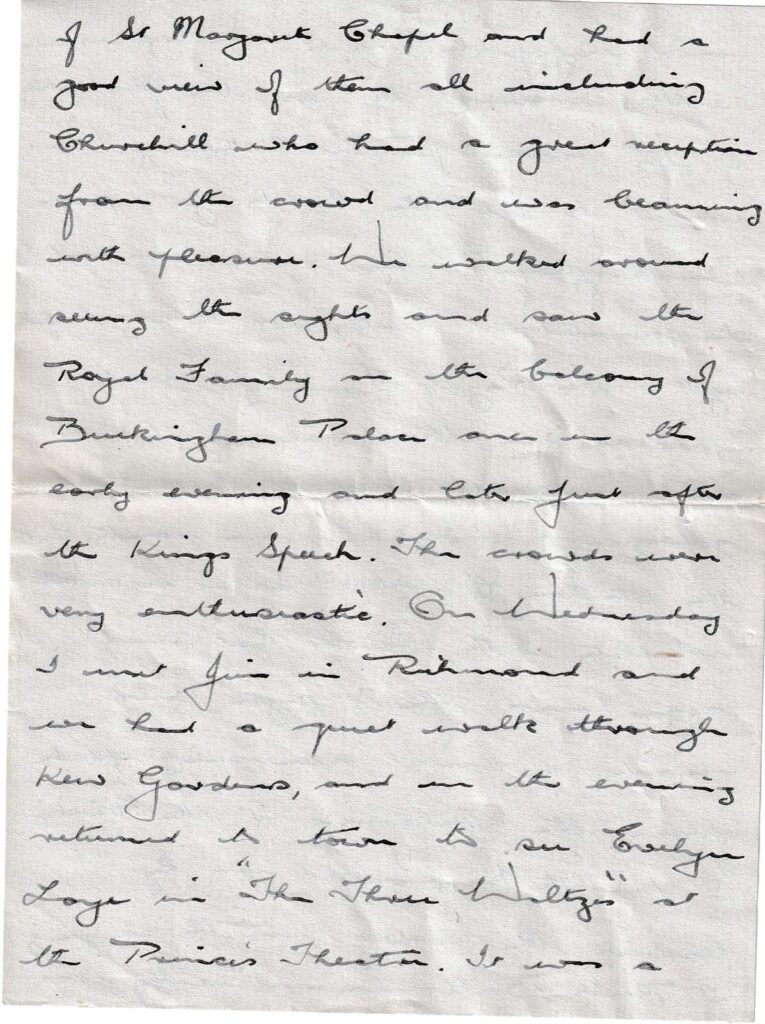 of St Margarets Chapel and had a
good view of them all including
Churchill who had a great reception
from the crowd and was beaming
with pleasure. We walked around
seeing the sights and saw the
Royal Family on the balcony of
Buckingham Palace once in the
early evening and later just after
the Kings Speech. The crowds were
very enthusiastic. On Wednesday
I met Jim in Richmond and
we had a quiet walk through
Kew Gardens, and in the evening
returned to town to see Evelyn
Laye in "The Three Waltzes" at
the Princes Theatre. It was a